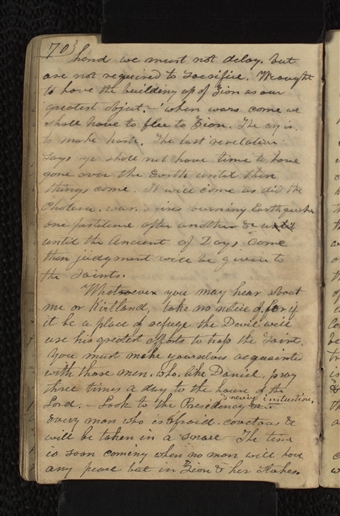 70
hand we must not delay. but
are not required to sacrifice. We ought
to have the building up of Zion as our
greatest object. - when wars come we
shall have to flee to Zion. The cry is
to make haste. The last revelation
says ye shall not have time to have
gone over the Earth until these
things come. It will come as did the
Cholera, war, fires burning Earthquakes
one pestilence after another &
until the Ancient of Days come
then judgment will be given to
the Saints.
Whatsoever you may hear about
me or Kirtland, take no notice of it for if
it be a place of refuge the Devil will
use his greatest efforts to trap the Saints
You must make yourselves acquainted
with those men, who like Daniel pray
three times a day to the house of the
Lord. - Look to the Presidency &
receive instruction.
Every man who is afraid, covetous &
will be taken in a snare - The time
is soon coming when no man will have
any peace but in Zion & her Stakes